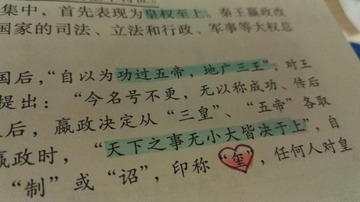 集中，首先表现为皇权至上。秦王嬴政改
国家的司法、立法和行政、军事等大权总
国后，“自以为功过五帝，地广三王”，对王
提出：“今名号不更，无以称成功、传后
人后，嬴政决定从“三皇”、“五帝”各取
嬴政时，“天下之事无小大皆决于上”，自
“制”或“诏”，印称“玺”，任何人对皇